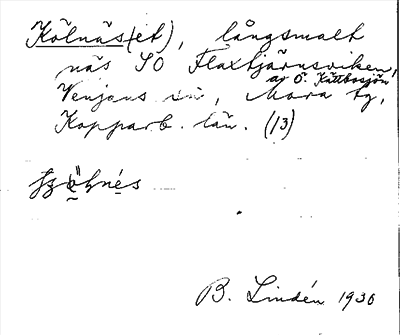 Kölnäs(et), långsmalt
näs SO Flaxtjärnsviken,
av Ö. Kättbosjön
Venjans sn, Mora tg,
Kopparb. län. (13)
B. Lindén 1936